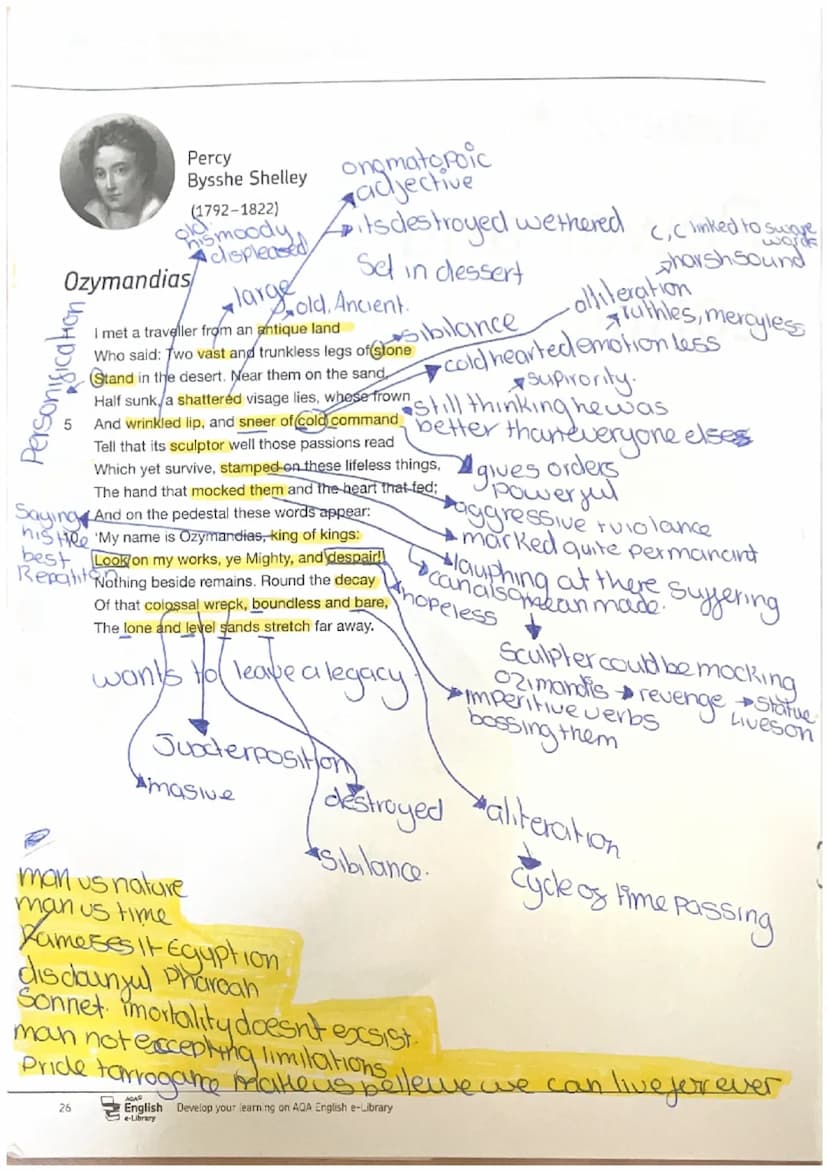 Percy
Bysshe Shelley
(1792–1822)
ongmatopoic
adjective
old
his moody
displeased
its destroyed wethered
Set in dessert
c, c linked to sware
words
harsh sound
Ozymandias
large
old, Ancient.
alliteration
ruthles, mercyless
Personification
I met a traveller from an antique land
Who said: Two vast and trunkless legs of stone
Stand in the desert. Near them on the sand,
Half sunk, a shattered visage lies, whose frown
5 And wrinkled lip, and sneer of cold command
Tell that its sculptor well those passions read
Which yet survive, stamped on these lifeless things,
The hand that mocked them and the heart that fed;
And on the pedestal these words appear:
'My name is Ozymandias, king of kings:
Look on my works, ye Mighty, and despair!'
Nothing beside remains. Round the decay
Of that colossal wreck, boundless and bare,
The lone and level sands stretch far away.
sibilance
coldhearted emotionless
supirority.
still thinking he was
better than everyone elses
gives orders
powerful
aggressive + violance
marked quite permanant
laughing at there suffering
can also mean made.
hopeless
Saying
his the
best
Repatiton
sculpter could be mocking
ozimandis → revenge → statue
lives on
imperitive verbs
bossing them
wants to leave a legacy
Juxterposition
masive
destroyed
sibilance.
aliteration
cycle of time passing
man vs nature
man vs time
Rameses II Egyption
disdainful Pharoah
Sonnet. imortality doesnt exsist.
man not eccepting limitations
pride + arrogance make us believe we can live for ever
26
AQA
English
e-Library
Develop your learning on AQA English e-Library